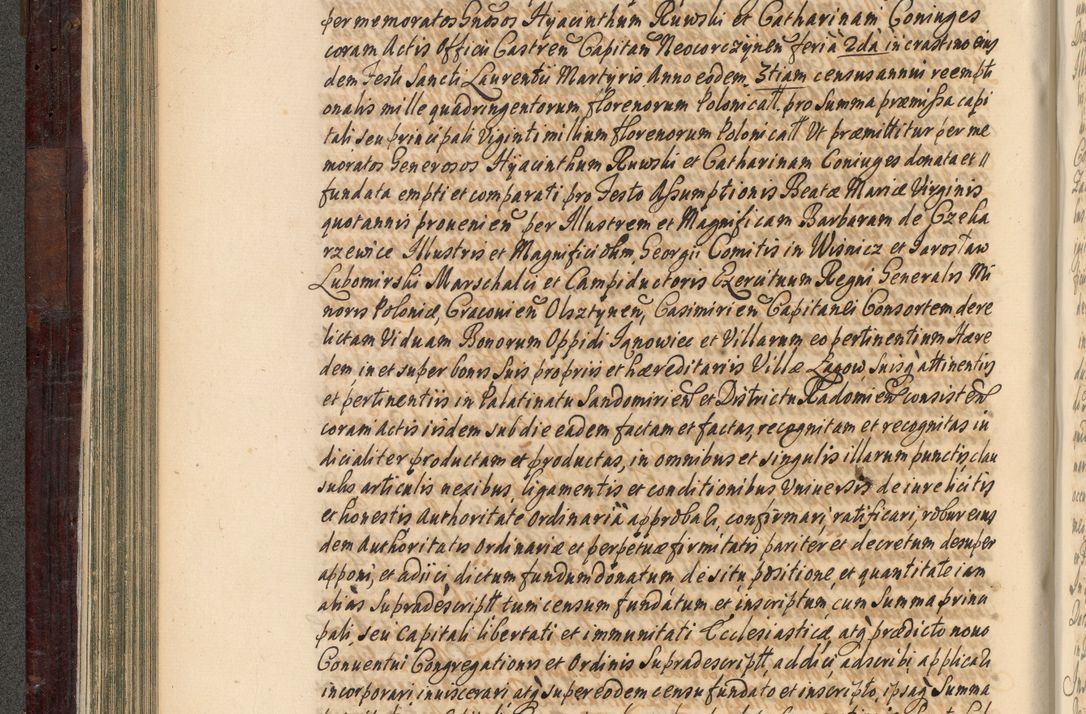 per memoratos Gnosos Hyacinthum Ruwski et Catharinam Coniuges
coram Actis Officii Castren Capitan Neocorczynen feria 2da in crastino eius
dem Festi Sancti Laurentii Martyris Anno eodem 3tiam census annui reempti
onalis mille quadringentorum florenorum Polonicall. pro Summa præmissa capi
tali seu principali Viginti millium florenorum Polonicall Ut præmittitur per me
moratos Generosos Hyacinthum Ruwski et Catharinam Coniuges donata et
fundata empti et comparati pro Festo Assumptionis Beatæ Mariæ Virginis
quotannis prouenien per Illustrem et Magnificam Barbaram de Czeka
rzewice Illustris et Magnifici olim Georgii Comitis in Wisnicz et Jarosław
Lubomirski Marschalci et Campiductoris Exercituum Regni Generalis Mi
noris Poloniæ, Cracouien Olsztynen, Casimirien Capitanei Consortem dere
lictam Viduam Bonorum Oppidi Janowiec et Villarum eo pertinentium Hære
dem in et super bonis suis propriis et hæreditariis Villæ Łagow suisq attinentis
et pertinentiis in Palatinatu Sandomirien et Districtu Radomien consisten
coram Actis iisdem sub die eadem factam et factas, recognitam et recognitas iu
dicialiter productam et productas, in omnibus et singulis illarum punctis clau
sulis articulis nexibus ligamentis et conditionibus Vniuersis de iure licitis
et honestis Authoritate Ordinaria approbali, confirmari, ratificari, robur eius
dem Authoritatis Ordinariæ et perpetuæ firmitatis pariter et decretum desuper
apponi, et adiici dictum fundum donatum de situ positione, et quantitate iam
alias Supradescriptt tum censum fundatum et inscriptum, cum Summa princi
pali, seu capitali libertati et immunitati Ecclesiasticæ atq prædicto nouo
Conuentui Congregationis et Ordinis Supradescriptt, addici adscribi applicali
incorporari, inuiscerari atq super eodem censu fundato et inscripto, ipsaq Summa